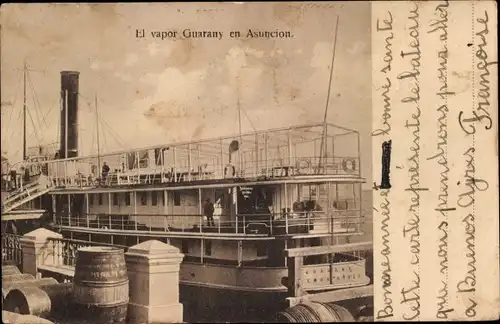 El vapor Guarany en Asuncion.
Bonne année bonne santé
Cette carte représente le bateau
que nous prendrons pour aller
a Buenos Ayres. Françoise